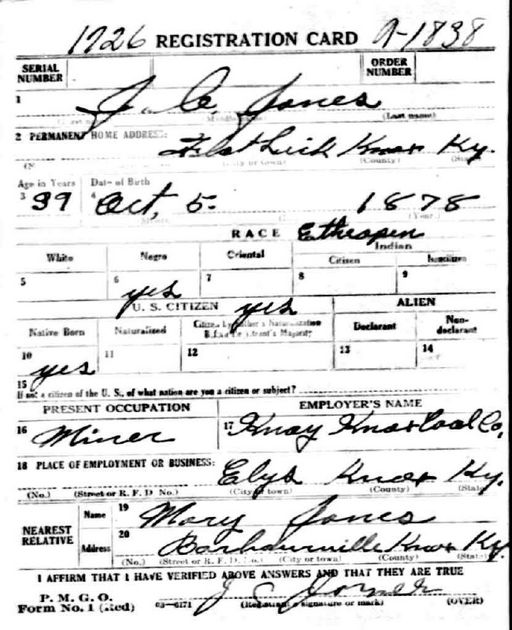 1726 REGISTRATION CARD A-1838
SERIAL NUMBER ORDER NUMBER
1 J. C. Jones
(Last name)
2 PERMANENT HOME ADDRESS: Flat Lick Knox Ky.
(City or town) (County) (State)
Age in Years Date of Birth
3 39 4 Oct, 5. 1878
(Year.)
RACE Ethiopen
White Negro Oriental Indian
Citizen Noncitizen
5 6 yes 7 8 9
U. S. CITIZEN yes ALIEN
Native Born Naturalized Citizen by Father's Naturalization Before Registrant's Majority Declarant Non-declarant
10 yes 11 12 13 14
15
If not a citizen of the U. S., of what nation are you a citizen or subject?
PRESENT OCCUPATION EMPLOYER'S NAME
16 Miner 17 Knox Coal Co,
18 PLACE OF EMPLOYMENT OR BUSINESS: Elys Knox Ky.
(No.) (Street or R. F. D No.) (City or town) (County) (State)
NEAREST RELATIVE Name 19 Mary Jones
Address 20 Barbourville Knox Ky
(No.) (Street or R. F. D. No.) (City or town) (County) (State)
I AFFIRM THAT I HAVE VERIFIED ABOVE ANSWERS AND THAT THEY ARE TRUE
P. M. G. O.
Form No. 1 (Red) 03—6171 J C
(Registrant's signature or mark) (OVER)